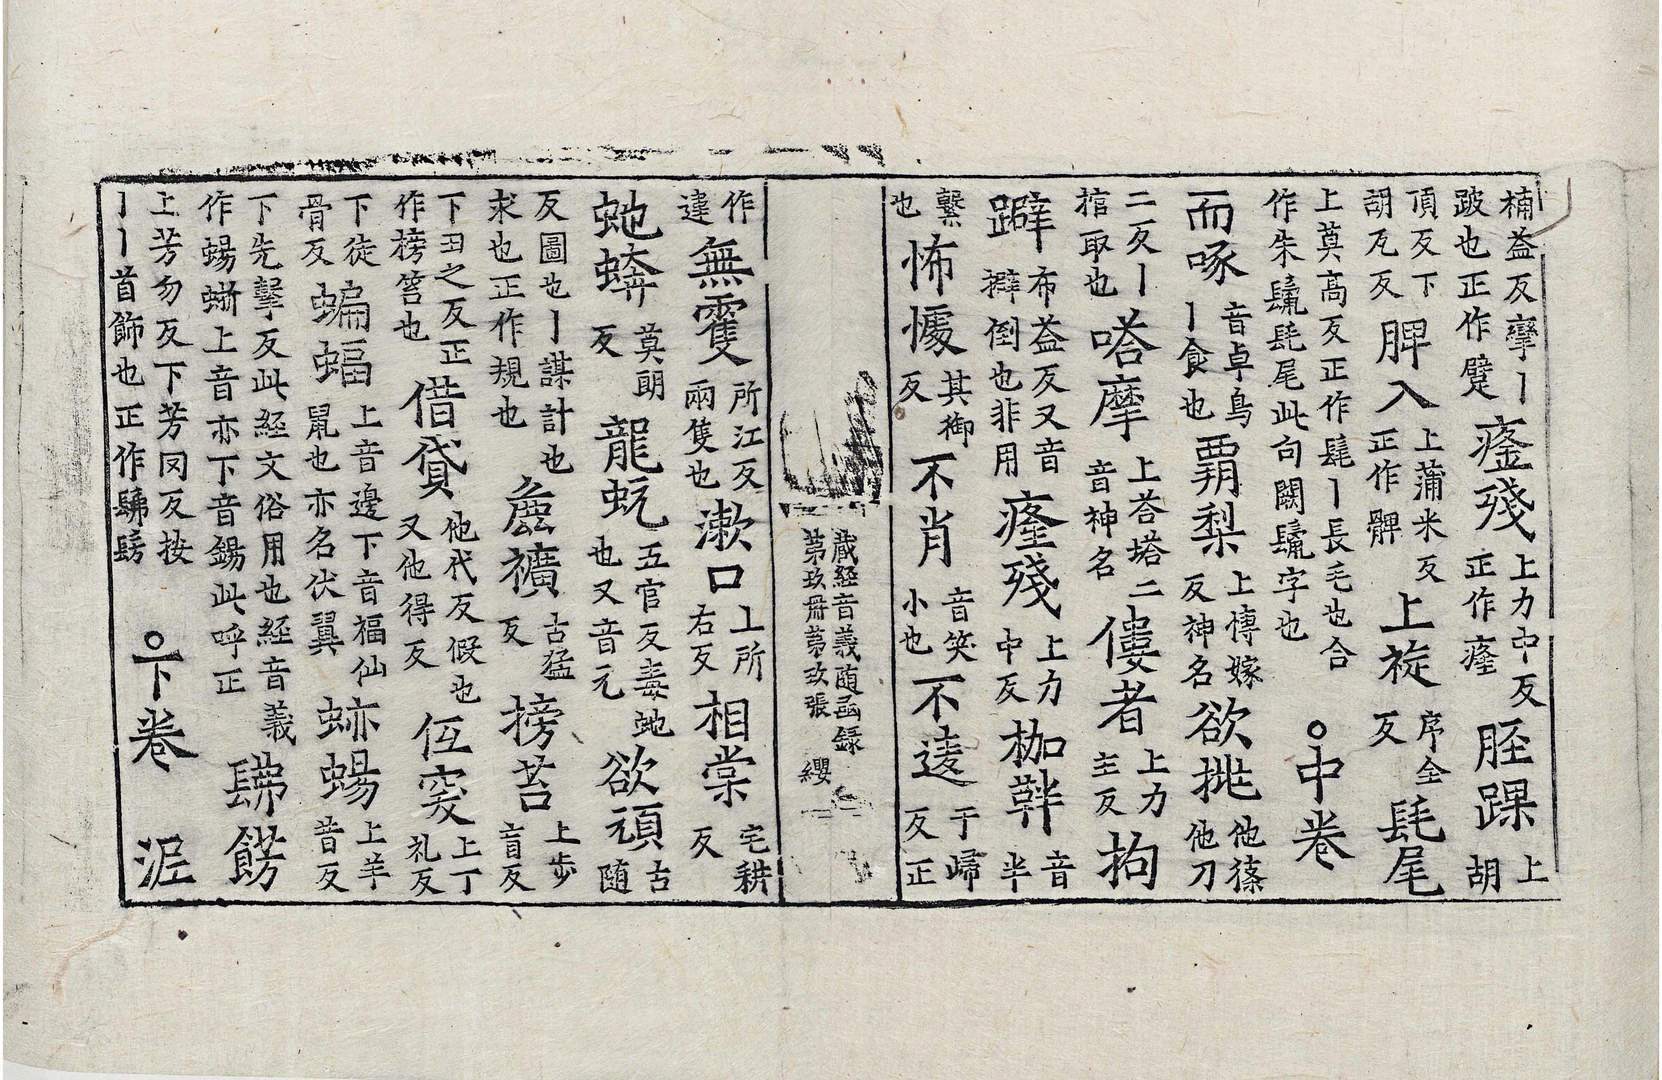 楠益反攣丨跛也正作躄癃殘上力中反正作癃胵踝上胡
頂反下胡瓦反脾入上蒲米反正作髀上旋序全反髦尾
上莫高反正作髦丨長毛也合作朱鬣髦尾此句闕鬣字也○中卷
而啄音卓鳥丨食也覇梨上愽嫁反神名欲挑他篠他刀
二反丨棺取也嗒摩上荅塔二音神名僂者上力主反拘
躃布益反又音擗倒也非用癃殘上力中反枷靽音半
繫也怖懅其御反不肖音笑小也不逵于歸反正
藏經音義隨函録
第玖冊第玖張 纓
作違無䨥所江反兩隻也漱口上所右反相棠宅耕反
虵蟒莫朗反龍蚖五官反毒虵也又音元欲頑古随
反圖也丨謀計也求也正作規也麁穬古猛反搒笞上步盲反
下丑之反正作榜笞也借貸他代反假也又他得反伍突上丁礼反
下徒骨反蝙蝠上音邊下音福仙鼠也亦名伏翼蜴上羊昔反
下先擊反此經文俗用也經音義作蜴蜥上音亦下音錫此呼正髴
上芳勿反下芳罔反按丨丨首飾也正作髴髣○下卷 泥